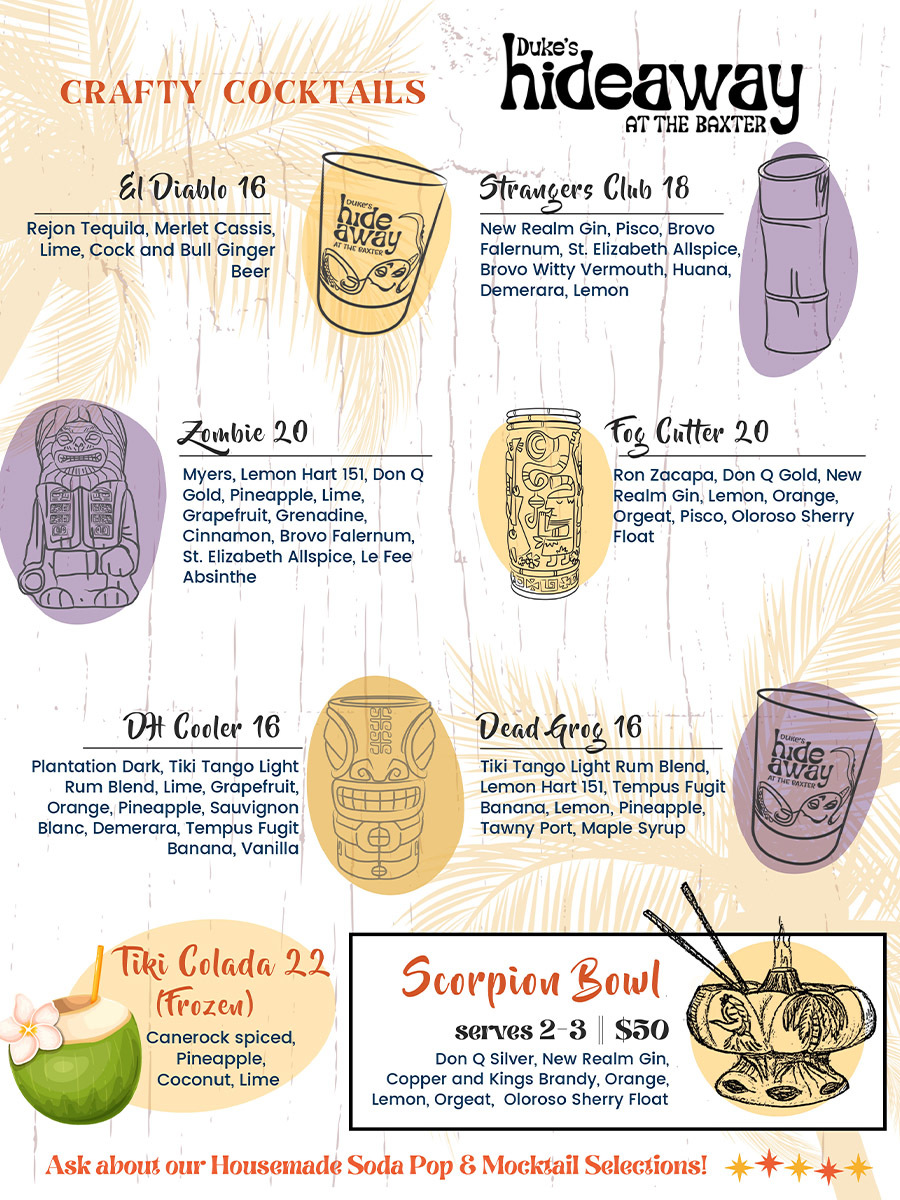 CRAFTY COCKTAILS
Duke's
hideaway
AT THE BAXTER
El Diablo 16
Rejon Tequila, Merlet Cassis,
Lime, Cock and Bull Ginger
Beer
DUKE'S
hide
away
AT THE BAXTER
Strangers Club 18
New Realm Gin, Pisco, Brovo
Falernum, St. Elizabeth Allspice,
Brovo Witty Vermouth, Huana,
Demerara, Lemon
Zombie 20
Myers, Lemon Hart 151, Don Q
Gold, Pineapple, Lime,
Grapefruit, Grenadine,
Cinnamon, Brovo Falernum,
St. Elizabeth Allspice, Le Fee
Absinthe
Fog Cutter 20
Ron Zacapa, Don Q Gold, New
Realm Gin, Lemon, Orange,
Orgeat, Pisco, Oloroso Sherry
Float
DH Cooler 16
Plantation Dark, Tiki Tango Light
Rum Blend, Lime, Grapefruit,
Orange, Pineapple, Sauvignon
Blanc, Demerara, Tempus Fugit
Banana, Vanilla
Dead Grog 16
Tiki Tango Light Rum Blend,
Lemon Hart 151, Tempus Fugit
Banana, Lemon, Pineapple,
Tawny Port, Maple Syrup
DUKE'S
hide
away
AT THE BAXTER
Tiki Colada 22
(Frozen)
Canerock spiced,
Pineapple,
Coconut, Lime
Scorpion Bowl
serves 2-3 || $50
Don Q Silver, New Realm Gin,
Copper and Kings Brandy, Orange,
Lemon, Orgeat, Oloroso Sherry Float
Ask about our Housemade Soda Pop & Mocktail Selections!